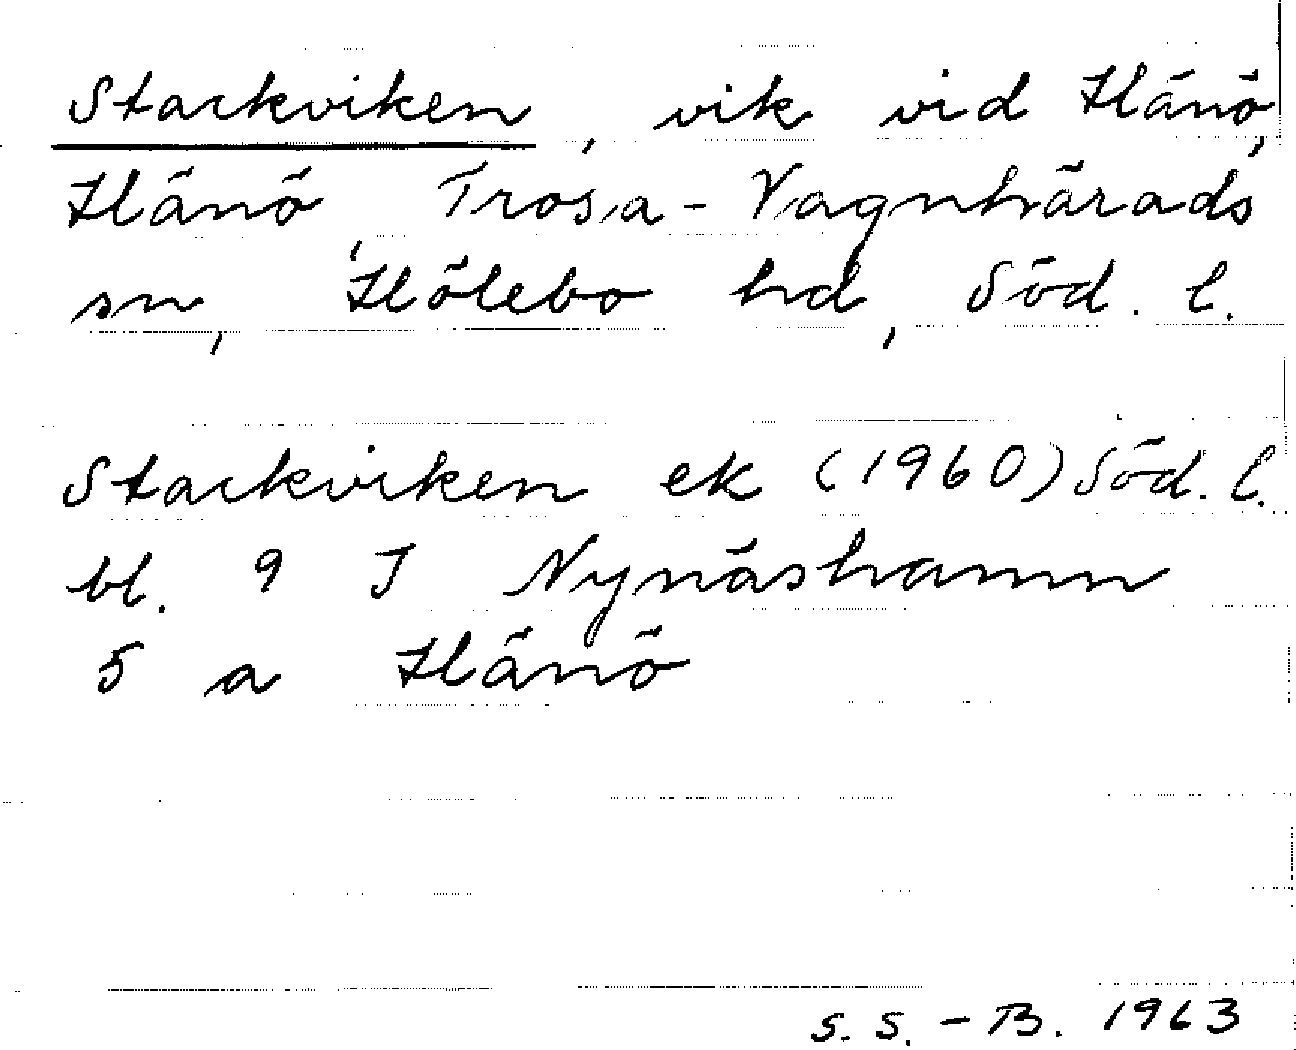 Stackviken, vik vid Hånö,
Hånö, Trosa-Vagnhärads
sn, Hölebo hd, Söd. l.
Stackviken ek (1960) Söd. l.
bl. 9 I Nynäshamn
5 a Hånö
S. S. - B. 1963